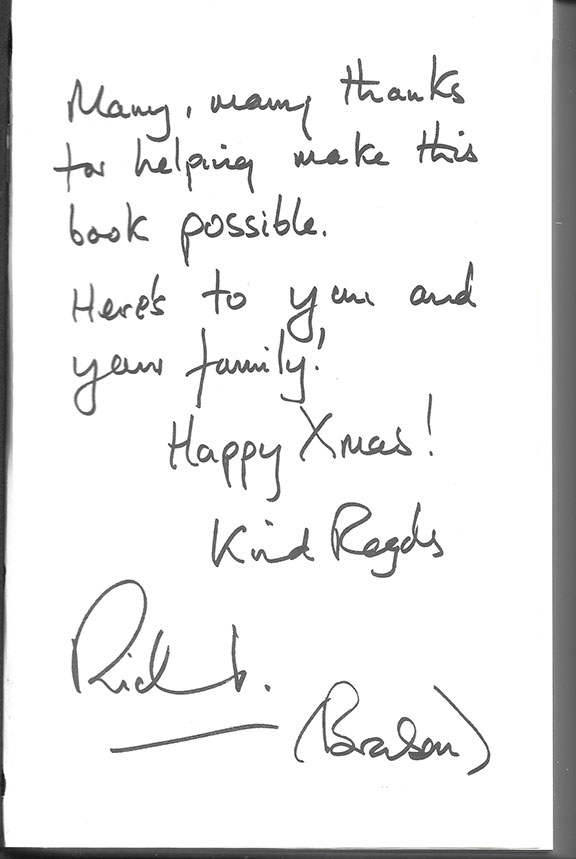 Many, many thanks
for helping make this
book possible.
Here's to you and
your family!
Happy Xmas!
Kind Regds
Rich b.
(Branson)